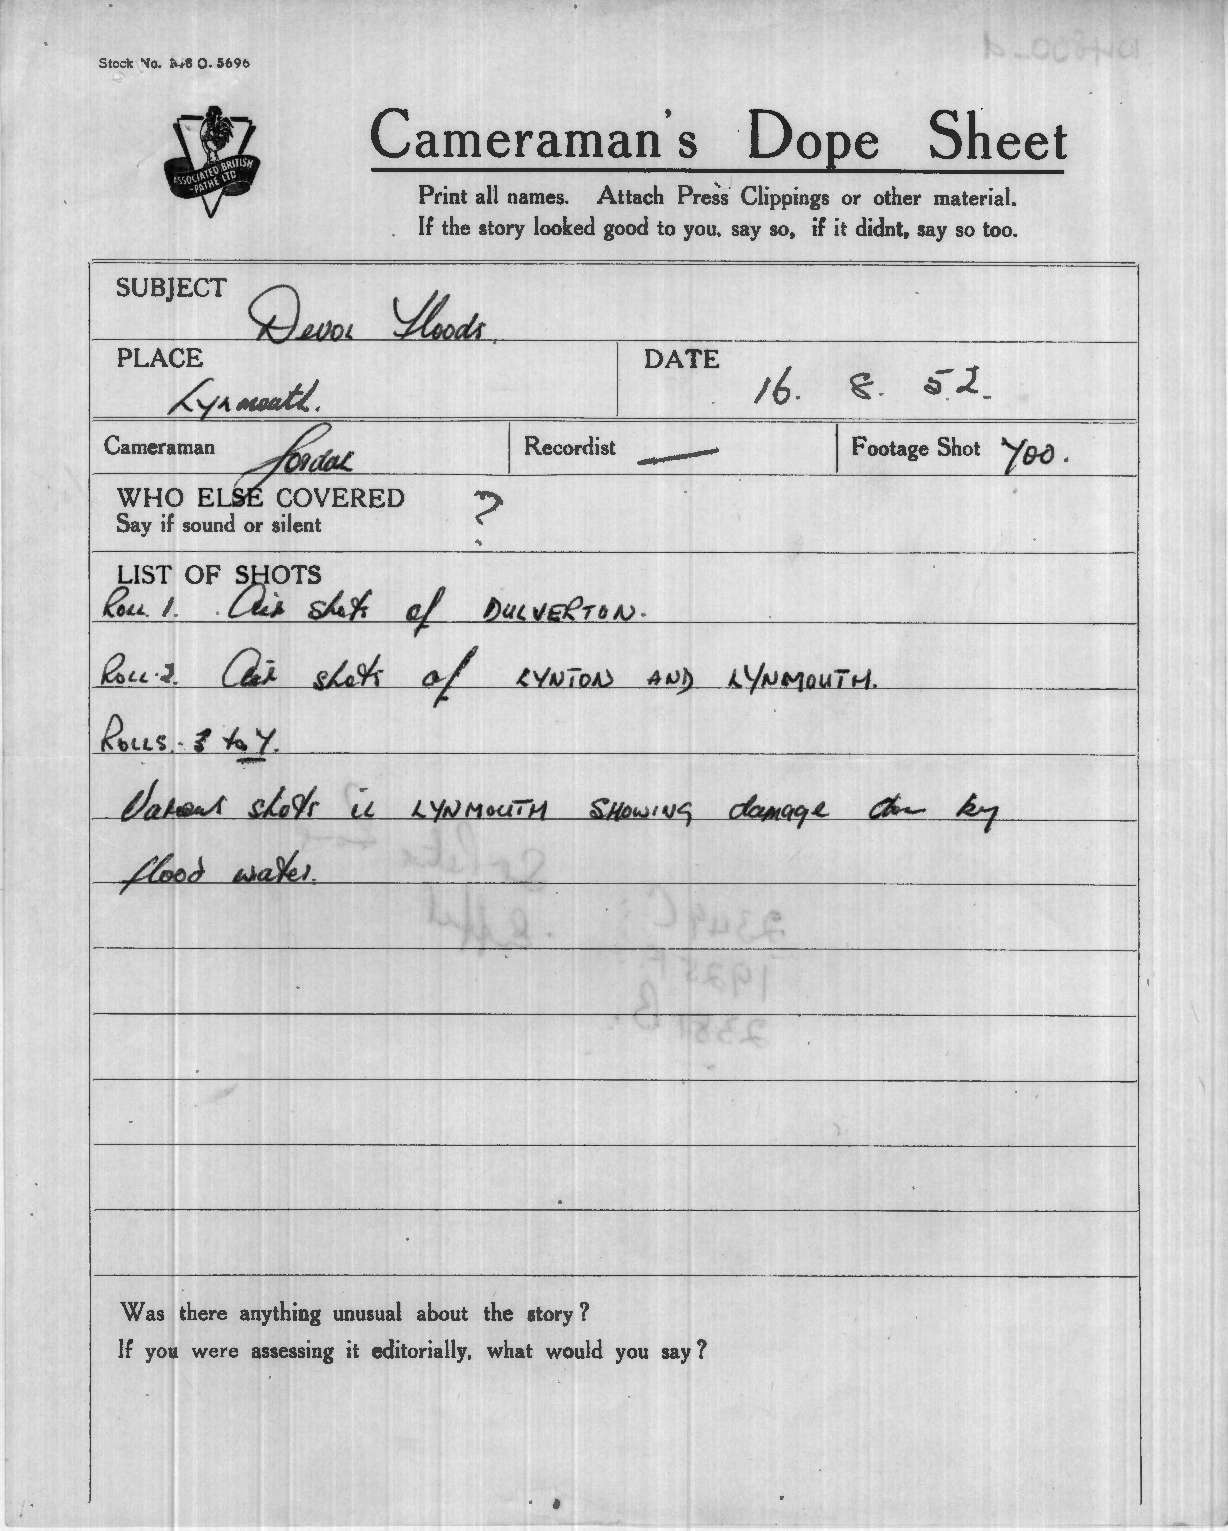 Stock No. A48 O. 5696
ASSOCIATED BRITISH
-PATHE LTD
Cameraman's Dope Sheet
Print all names. Attach Press Clippings or other material.
If the story looked good to you, say so, if it didnt, say so too.
SUBJECT
Devon Floods.
PLACE
Lynmouth.
DATE
16. 8. 52.
Cameraman Jordan
Recordist —
Footage Shot 700.
WHO ELSE COVERED
Say if sound or silent
?
LIST OF SHOTS
ROLL 1. Air shots of DULVERTON.
ROLL 2. Air shots of LYNTON AND LYNMOUTH.
ROLLS. 3 to 7.
Various shots in LYNMOUTH SHOWING damage done by
flood water.
Was there anything unusual about the story?
If you were assessing it editorially, what would you say?